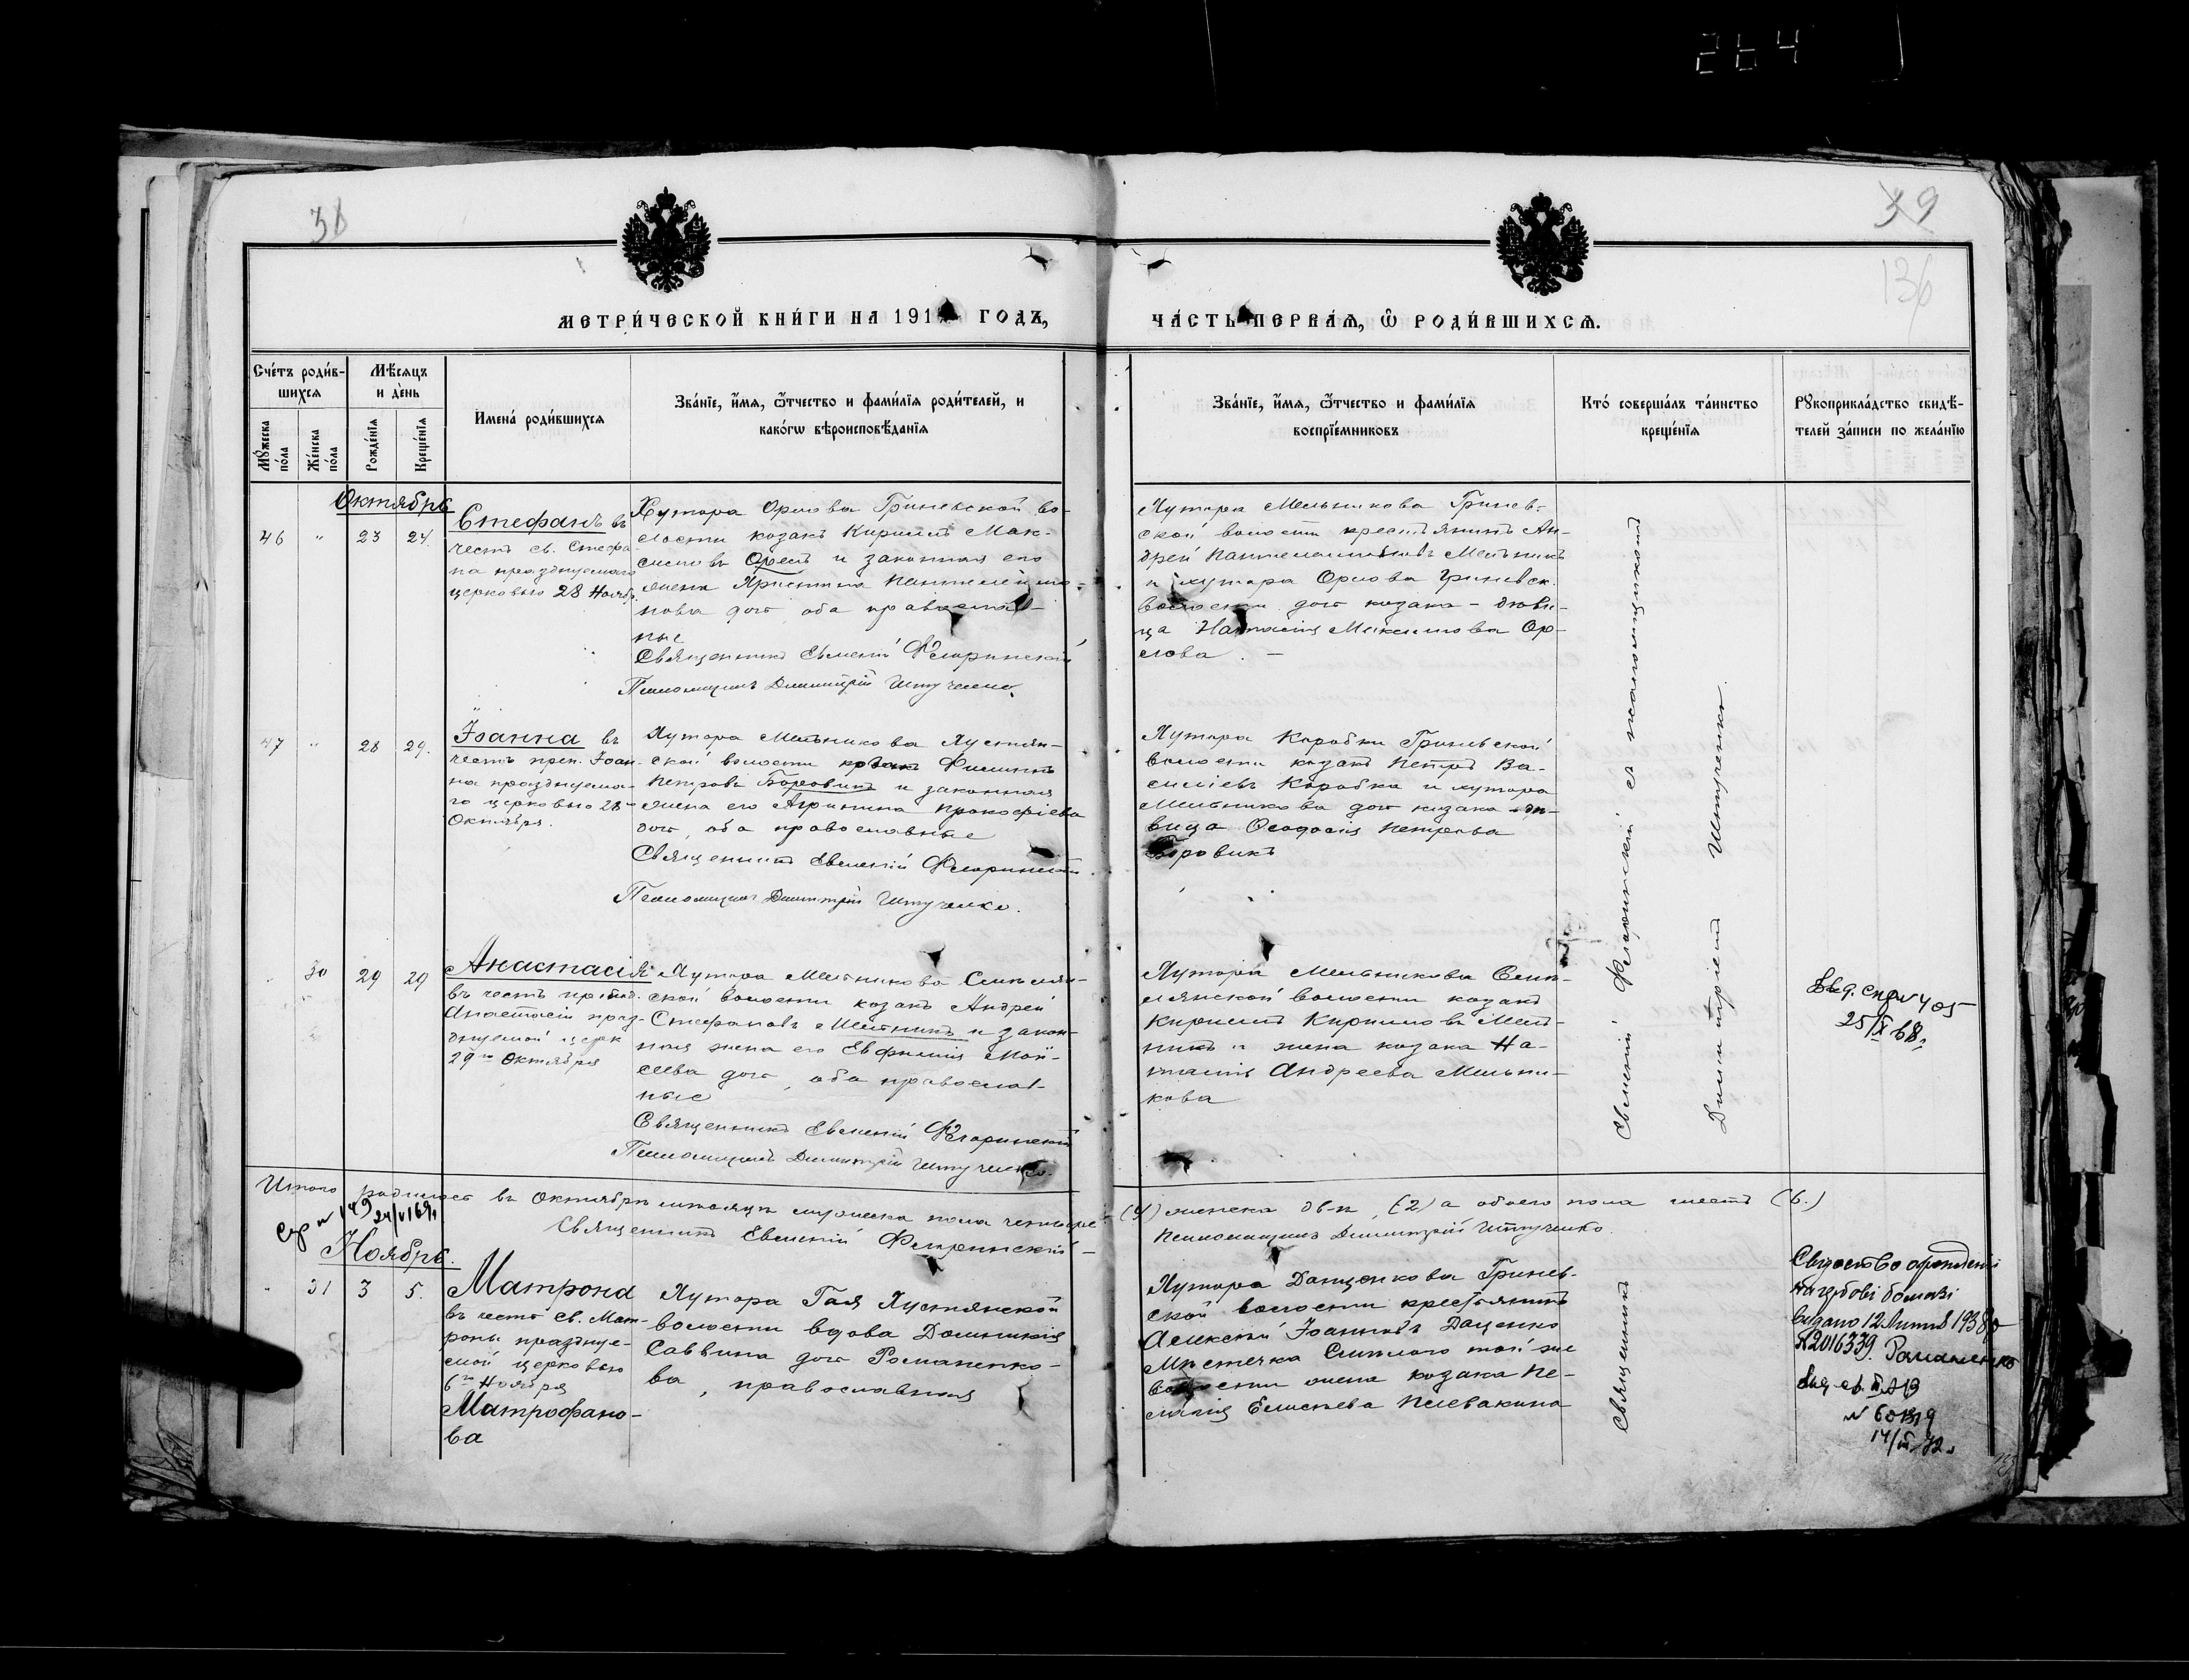 264
38
39
136
МЕТРИ́ЧЕСКОЙ КНИ́ГИ НА 191 ГОДЪ,
ЧА́СТЬ ПЕРВАЯ, Ѡ РОДИ́ВШИХСЯ.
Сче́тъ роди́в-
шихся
Мѣ́сяцъ
и де́нь
Имена́ роди́вшихся
Зва́нїе, и҆́мя, ѻ҆́тчество и фами́лїя роди́телей, и
како́гѡ вѣроисповѣ́данїя
Му́жеска
по́ла
Же́нска
по́ла
Рожде́нїя
Креще́нїя
Зва́нїе, и҆́мя, ѻ҆́тчество и фами́лїя
воспрїе́мниковъ
Кто́ соверша́лъ та́инство
креще́нїя
Рукоприкла́дство свидѣ́-
телей за́писи по жела́нїю
Октябрь
46 " 23 24.
Стефанъ въ
честь св. Стефа-
на празднуемаго
церковью 28 Ноябр.
Хутора Орлова Гриневской во-
лости козакъ Кириллъ Мак-
симовъ Орелъ и законная его
жена Христина Пантелеимо-
нова доч. оба православ-
ные
Священникъ Евменій Флоринскій
Псаломщикъ Димитрій Штученко.
Хутора Мельникова Гринев-
ской волости крестьянинъ Ан-
дрей Пантелеимоновъ Мельникъ
и хутора Орлова Гриневск.
волости доч козака - дѣви-
ца Наталія Максимова Ор-
лова. -
47 " 28 29.
Іоанна въ
честь преп. Іоан-
на празднуема-
го церковью 28го
Октября.
Хутора Мельникова Хустян-
ской волости Филиппъ
Петровъ Боровикъ и законная
жена его Агрипина Прокофіева
доч, оба православные
Священникъ Евменій Флоринскій
Псаломщикъ Димитрій Штученко.
Хутора Коробки Гриневской
волости козакъ Петръ Ва-
силіевъ Коробка и хутора
Мельникова доч козака - дѣ-
вица Ѳеодосія Петрова
Боровикъ
30 29 29
Анастасія
въ честь препод.
Анастасіи праз-
днуемой церк
29го Октября
Хутора Мельникова Смѣлян-
ской волости козакъ Андрей
Стефановъ Мельникъ и закон-
ная жена его Евфимія Мои-
сеева доч, оба православ-
ные
Священникъ Евменій Флоринскій
Псаломщикъ Димитрій Штученко.
Хутора Мельникова Смѣ-
лянской волости козакъ
Кириллъ Кирилловъ Мель-
никъ и жена козака На-
талія Андреева Мельни-
кова
Евменій Флоринскій съ псаломщикомъ
Димитріемъ Штученко.
405
25/X 68г
Итого родилось въ Октябрѣ мѣсяцѣ мужеска пола четыре (4) женска двѣ (2) а обоего пола шесть (6.)
Священникъ Евменій Флоринскій - Псаломщикъ Димитрій Штученко.
№ 149
24/V 69г
Ноябрь.
" 31 3 5.
Матрона
въ честь св. Мат-
роны празднуе-
мой церковью
6го Ноября
Матрофано-
ва
Хутора Гая Хустянской
волости вдова Домникія
Саввина доч Романенко-
ва, православная
Хутора Даценкова Гринев-
ской волости крестьянинъ
Алексѣй Іоанновъ Даценко
Мѣстечка Смѣлого той же
волости жена козака Пе-
лагія Елисеева Пелевакина
Священникъ
видано 12 Липня 1938р
№2016339. Романенко
14/III 72г